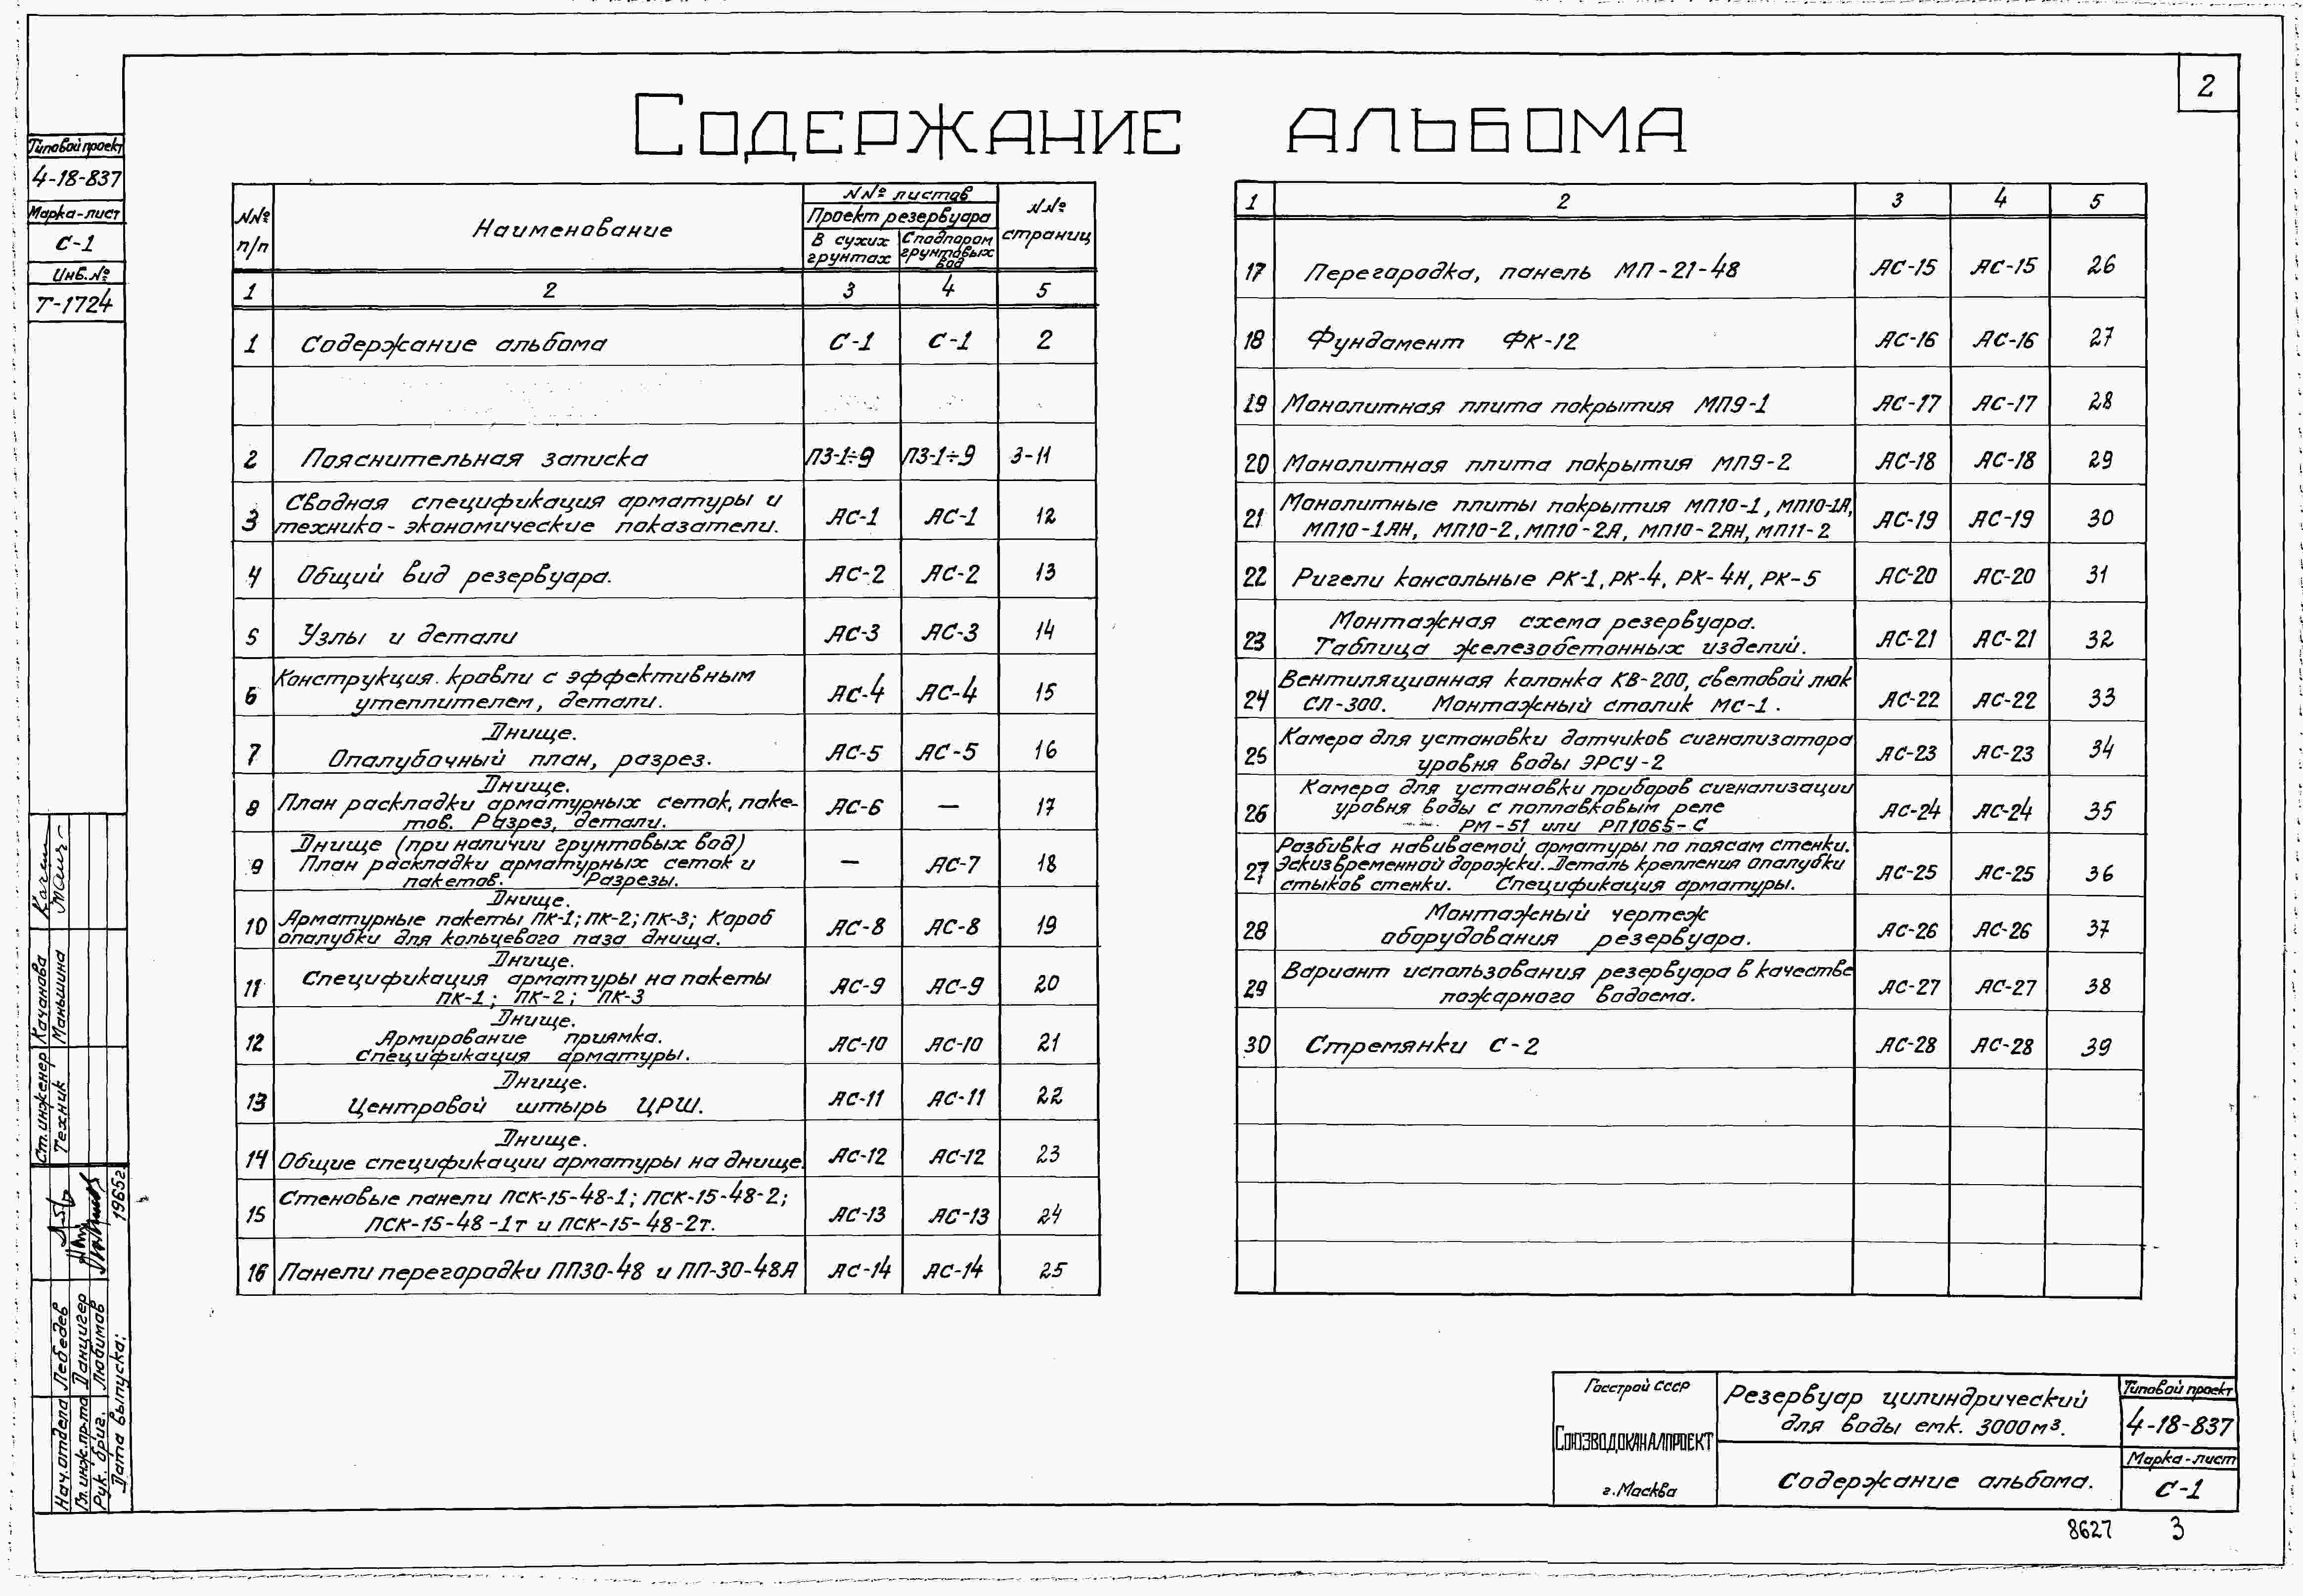 2
Содержание альбома
Типовой проект
4-18-837
Марка-лист
С-1
Инв.№
Т-1724
N№ п/п
Наименование
N№ листов
Проект резервуара
В сухих грунтах
С подпором грунтовых вод
N№ страниц
1 2 3 4 5
1 Содержание альбома С-1 С-1 2
2 Пояснительная записка ПЗ-1÷9 ПЗ-1÷9 3-11
3 Сводная спецификация арматуры и
технико-экономические показатели. АС-1 АС-1 12
4 Общий вид резервуара. АС-2 АС-2 13
5 Узлы и детали АС-3 АС-3 14
6 Конструкция кровли с эффективным
утеплителем, детали. АС-4 АС-4 15
7 Днище.
Опалубочный план, разрез. АС-5 АС-5 16
8 Днище.
План раскладки арматурных сеток, паке-
тов. Разрез, детали. АС-6 — 17
9 Днище (при наличии грунтовых вод)
План раскладки арматурных сеток и
пакетов. Разрезы. — АС-7 18
10 Днище.
Арматурные пакеты ПК-1; ПК-2; ПК-3; Короб
опалубки для кольцевого паза днища. АС-8 АС-8 19
11 Днище.
Спецификация арматуры на пакеты
ПК-1; ПК-2; ПК-3 АС-9 АС-9 20
12 Днище.
Армирование приямка.
Спецификация арматуры. АС-10 АС-10 21
13 Днище.
Центровой штырь ЦРШ. АС-11 АС-11 22
14 Днище.
Общие спецификации арматуры на днище. АС-12 АС-12 23
15 Стеновые панели ПСК-15-48-1; ПСК-15-48-2;
ПСК-15-48-1т и ПСК-15-48-2т. АС-13 АС-13 24
16 Панели перегородки ПП30-48 и ПП-30-48А АС-14 АС-14 25
1 2 3 4 5
17 Перегородка, панель МП-21-48 АС-15 АС-15 26
18 Фундамент ФК-12 АС-16 АС-16 27
19 Монолитная плита покрытия МП9-1 АС-17 АС-17 28
20 Монолитная плита покрытия МП9-2 АС-18 АС-18 29
21 Монолитные плиты покрытия МП10-1, МП10-1А,
МП10-1АН, МП10-2, МП10-2А, МП10-2АН, МП11-2 АС-19 АС-19 30
22 Ригели консольные РК-1, РК-4, РК-4Н, РК-5 АС-20 АС-20 31
23 Монтажная схема резервуара.
Таблица железобетонных изделий. АС-21 АС-21 32
24 Вентиляционная колонка КВ-200, световой люк
СЛ-300. Монтажный столик МС-1. АС-22 АС-22 33
25 Камера для установки датчиков сигнализатора
уровня воды ЭРСУ-2 АС-23 АС-23 34
26 Камера для установки приборов сигнализации
уровня воды с поплавковым реле
РМ-51 или РП1065-С АС-24 АС-24 35
27 Разбивка навиваемой арматуры по поясам стенки.
Эскиз временной дорожки. Деталь крепления опалубки
стыков стенки. Спецификация арматуры. АС-25 АС-25 36
28 Монтажный чертеж
оборудования резервуара. АС-26 АС-26 37
29 Вариант использования резервуара в качестве
пожарного водоема. АС-27 АС-27 38
30 Стремянки С-2 АС-28 АС-28 39
Ст. инженер Качанова
Техник Маньшина
Нач. отдела Лебедев
Гл. инж. пр-та Данцигер
Рук. бриг. Любимов
Дата выпуска: 1965г.
Госстрой СССР
Союзводоканалпроект
г. Москва
Резервуар цилиндрический
для воды емк. 3000м³.
Содержание альбома.
Типовой проект
4-18-837
Марка-лист
С-1
8627 3